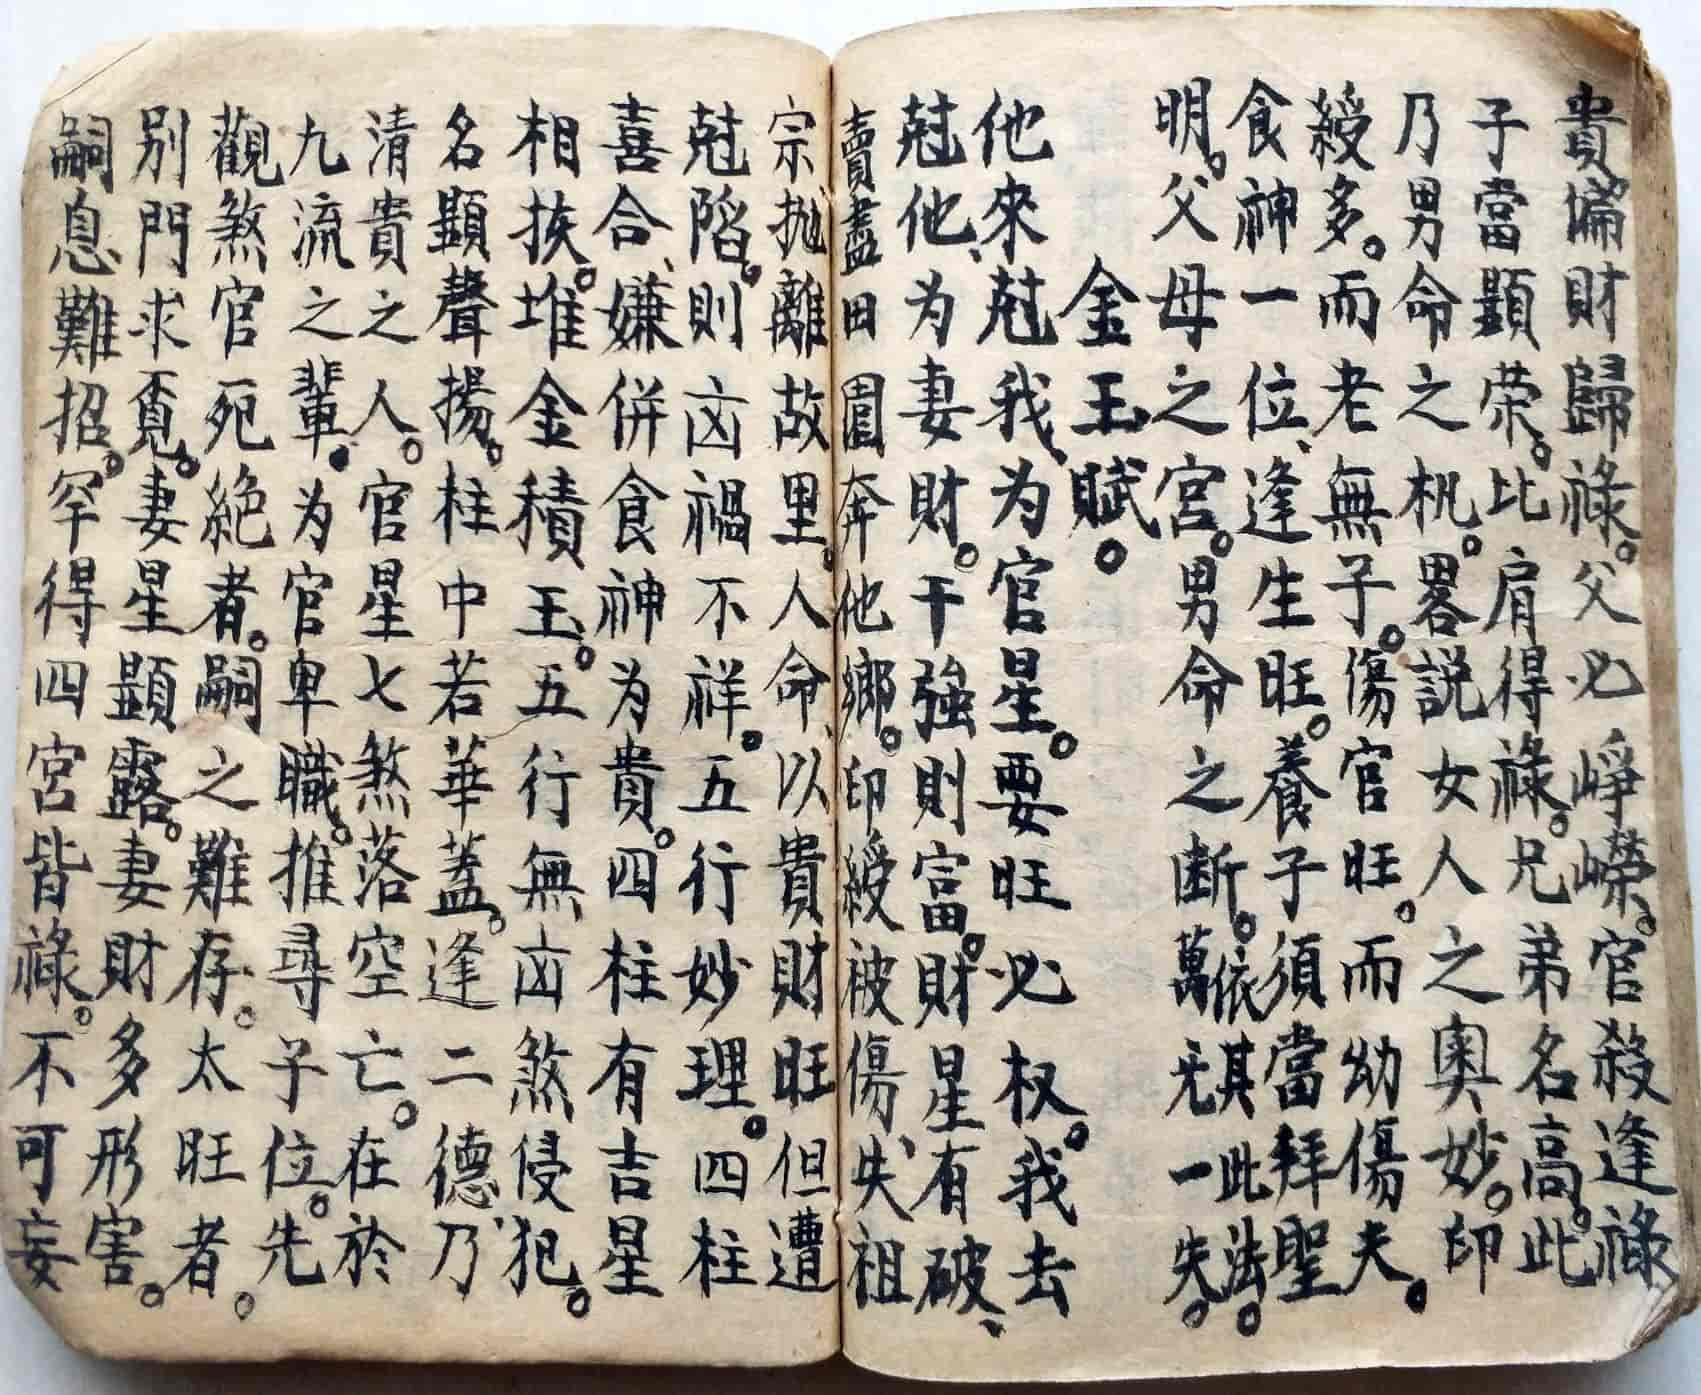 貴。偏財歸祿。父必崢嶸。官殺逢祿
子當顯荣。比肩得祿。兄弟名高。此
乃男命之机。畧説女人之奥妙。印
綬多。而老無子。傷官旺。而幼傷夫。
食神一位、逢生旺。養子須當拜聖
明。父母之宮。男命之断。依其此法。萬无一失。
金玉賦。
他來尅我、为官星。要旺必权。我去
尅他、为妻財。干強則富。財星有破、
賣盡田園奔他鄉。印綬被傷、失祖
宗抛離故里。人命、以貴財旺但遭
尅陷。則凶禍不祥。五行妙理。四柱
喜合、嫌併食神为貴。四柱有吉星
相挨。堆金積玉。五行無凶煞侵犯。
名顯聲揚。柱中若華蓋。逢二德、乃
清貴之人。官星七煞落空亡。在於
九流之輩。为官卑職。推尋子位。先
觀煞官死絶者。嗣之難存。太旺者。
別門求覓。妻星顯露。妻財多形害。
嗣息難招。罕得四宮皆祿。不可妄